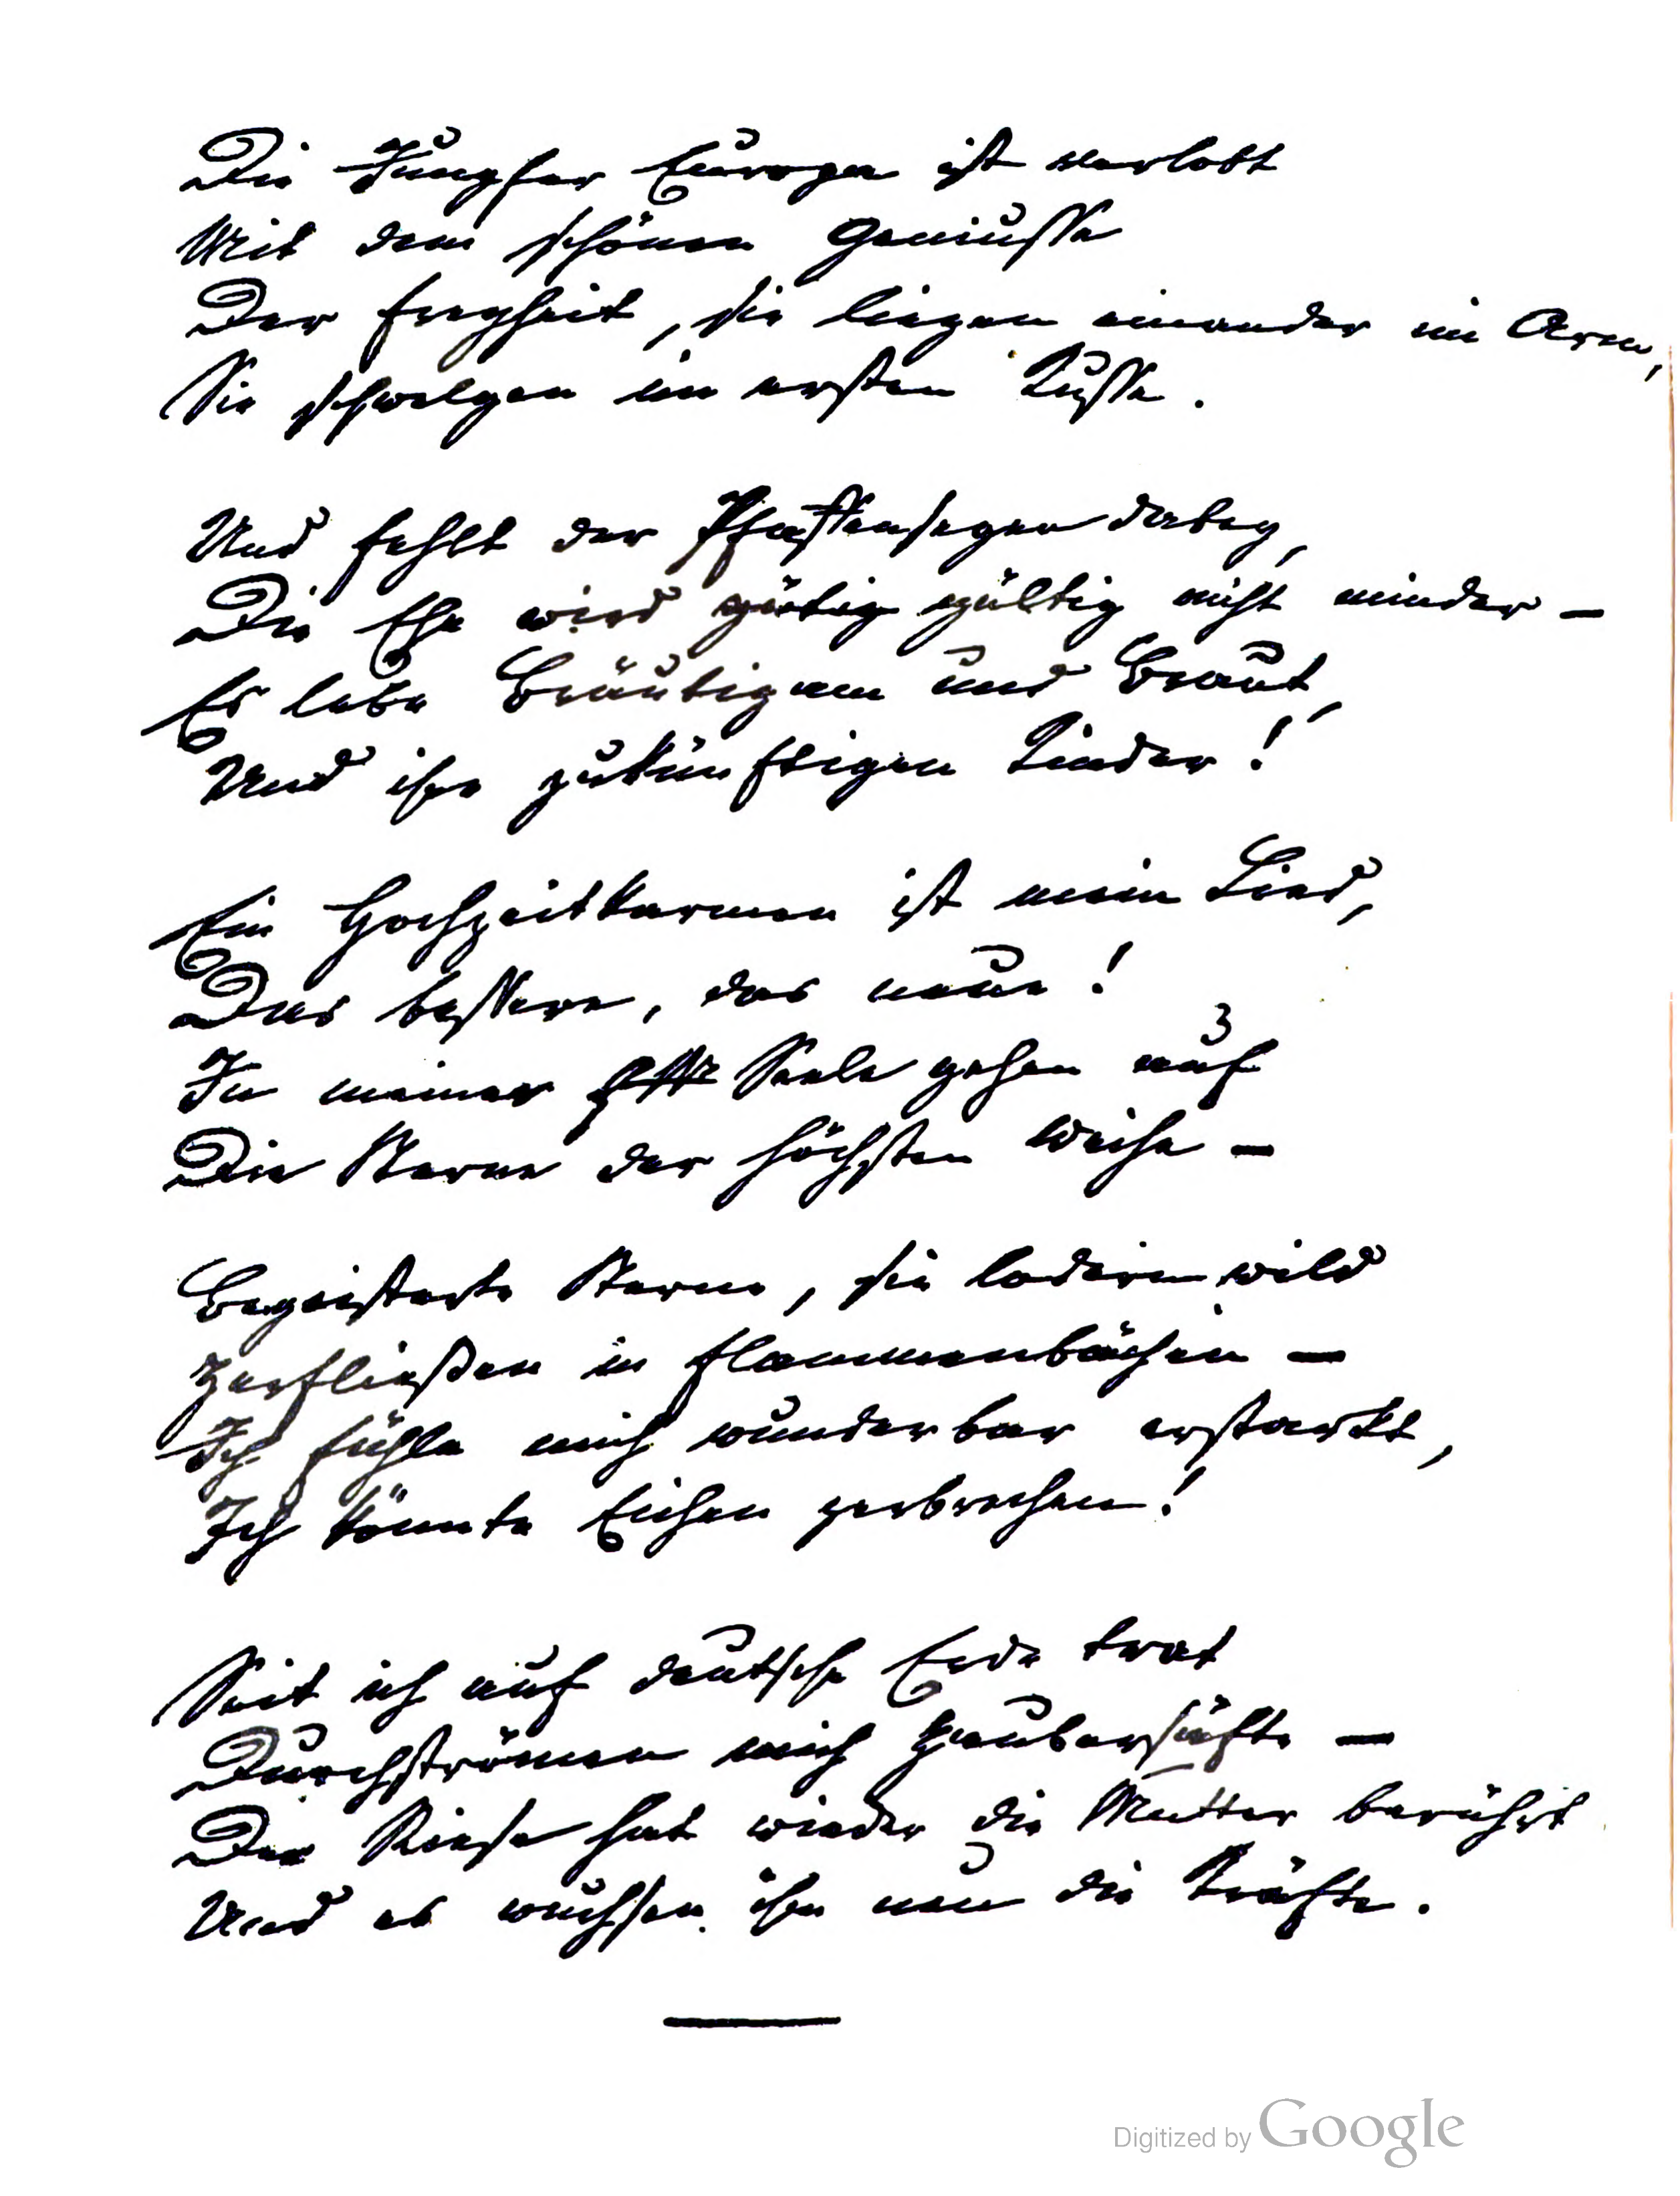 Die Jungfer Europa ist verlobt
Mit dem schönen Geniusse
Der Freyheit, sie liegen einander im Arm,
Sie schwelgen im ersten Kusse.
Und fehlt der Pfaffensegen dabey,
Die Ehe wird gültig nicht minder –
Es lebe Bräutigam und Braut,
Und ihre zukünftigen Kinder!
Ein Hochzeitkarmen ist mein Lied,
Das bessere, das neue!
In meiner Seele gehen auf
Die Sterne der höchsten Weihe –
Begeisterte Sterne, sie lodern wild
Zerfließen in Flammenbächen –
Ich fühle mich wunderbar erstarkt,
Ich könnte Eichen zerbrechen!
Seit ich auf deutsche Erde trat
Durchströmen mich Zaubersäfte –
Der Riese hat wieder die Mutter berührt
Und es wuchsen ihm neu die Kräfte.
Digitized by Google